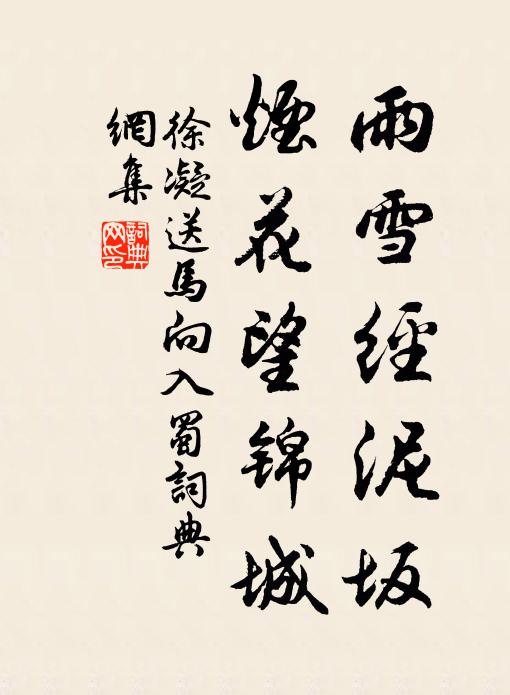 雨雪經泥坂
煙花望錦城
徐凝送馬向入蜀詞典
網集
詞典網印